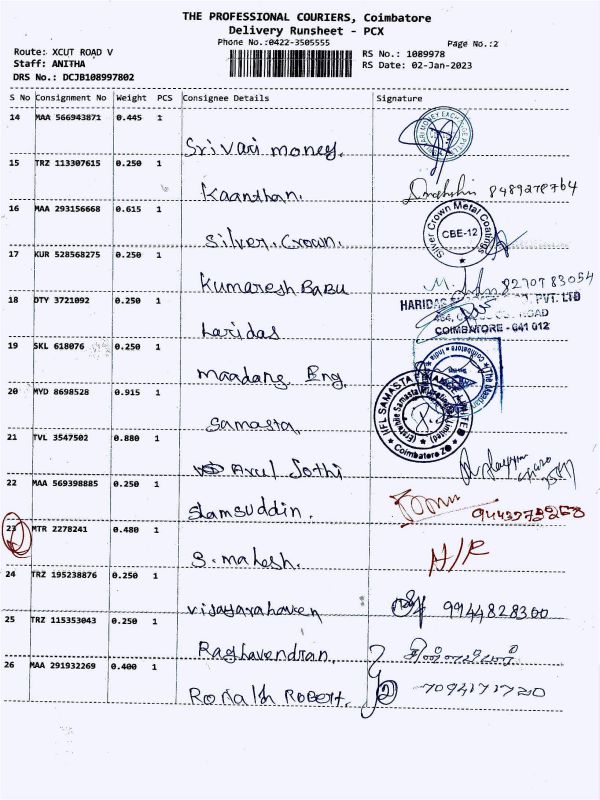 THE PROFESSIONAL COURIERS, Coimbatore
Delivery Runsheet - PCX
Phone No.:0422-3505555
Page No.:2
Route: XCUT ROAD V
RS No.: 1089978
Staff: ANITHA
RS Date: 02-Jan-2023
DRS No.: DCJB108997802
S No Consignment No Weight PCS Consignee Details Signature
14 MAA 566943871 0.445 1
Srivari money.
15 TRZ 113307615 0.250 1
Kaanthan. 8489278764
16 MAA 293156668 0.615 1
Silver Crown Metal Coatings
CBE-12
Silver. Crown.
17 KUR 528568275 0.250 1
Kumaresh BABU 8270783054
18 DTY 3721092 0.250 1
HARIDAS PVT. LTD
ROAD
COIMBATORE - 641 012
Laridas
19 SKL 618076 0.250 1
Maadang Eng.
20 MYD 8698528 0.915 1
IIFL SAMASTA FINANCE LIMITED
(Erstwhile Samasta Microfinance Limited)
Coimbatore ZO
Samasta
21 TVL 3547502 0.880 1
Arul Jothi
22 MAA 569398885 0.250 1
Slamsuddin.
23 MTR 2278241 0.480 1
S. mahesh. N/R
24 TRZ 195238876 0.250 1
vijayarahaven 9944828300
25 TRZ 115353043 0.250 1
Raghavendran.
26 MAA 291932269 0.400 1
Ronalth Robert. 2 7094171720